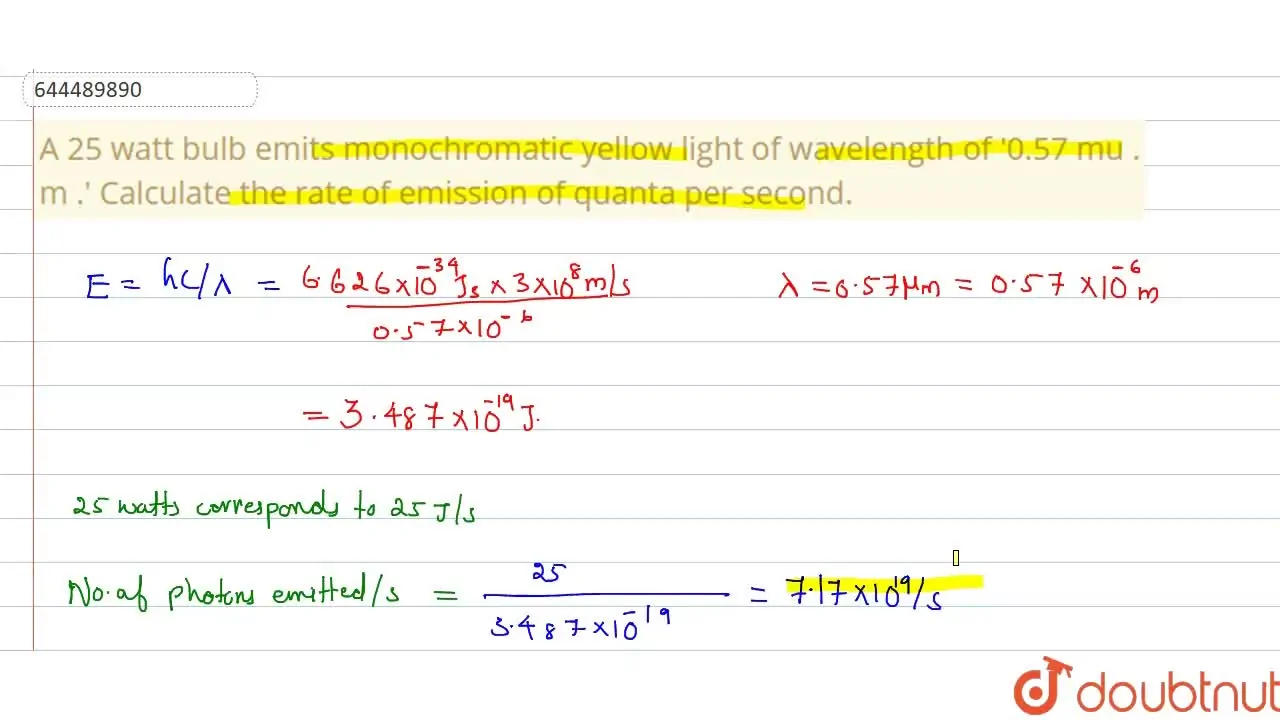 644489890
A 25 watt bulb emits monochromatic yellow light of wavelength of '0.57 mu .
m .' Calculate the rate of emission of quanta per second.
E = hc/λ = 6.626×10⁻³⁴Js × 3×10⁸m/s / 0.57×10⁻⁶
λ = 0.57μm = 0.57 ×10⁻⁶m
= 3.487×10⁻¹⁹J.
25 watts corresponds to 25 J/s
No. of photons emitted/s = 25 / 3.487×10⁻¹⁹ = 7.17×10¹⁹/s
doubtnut